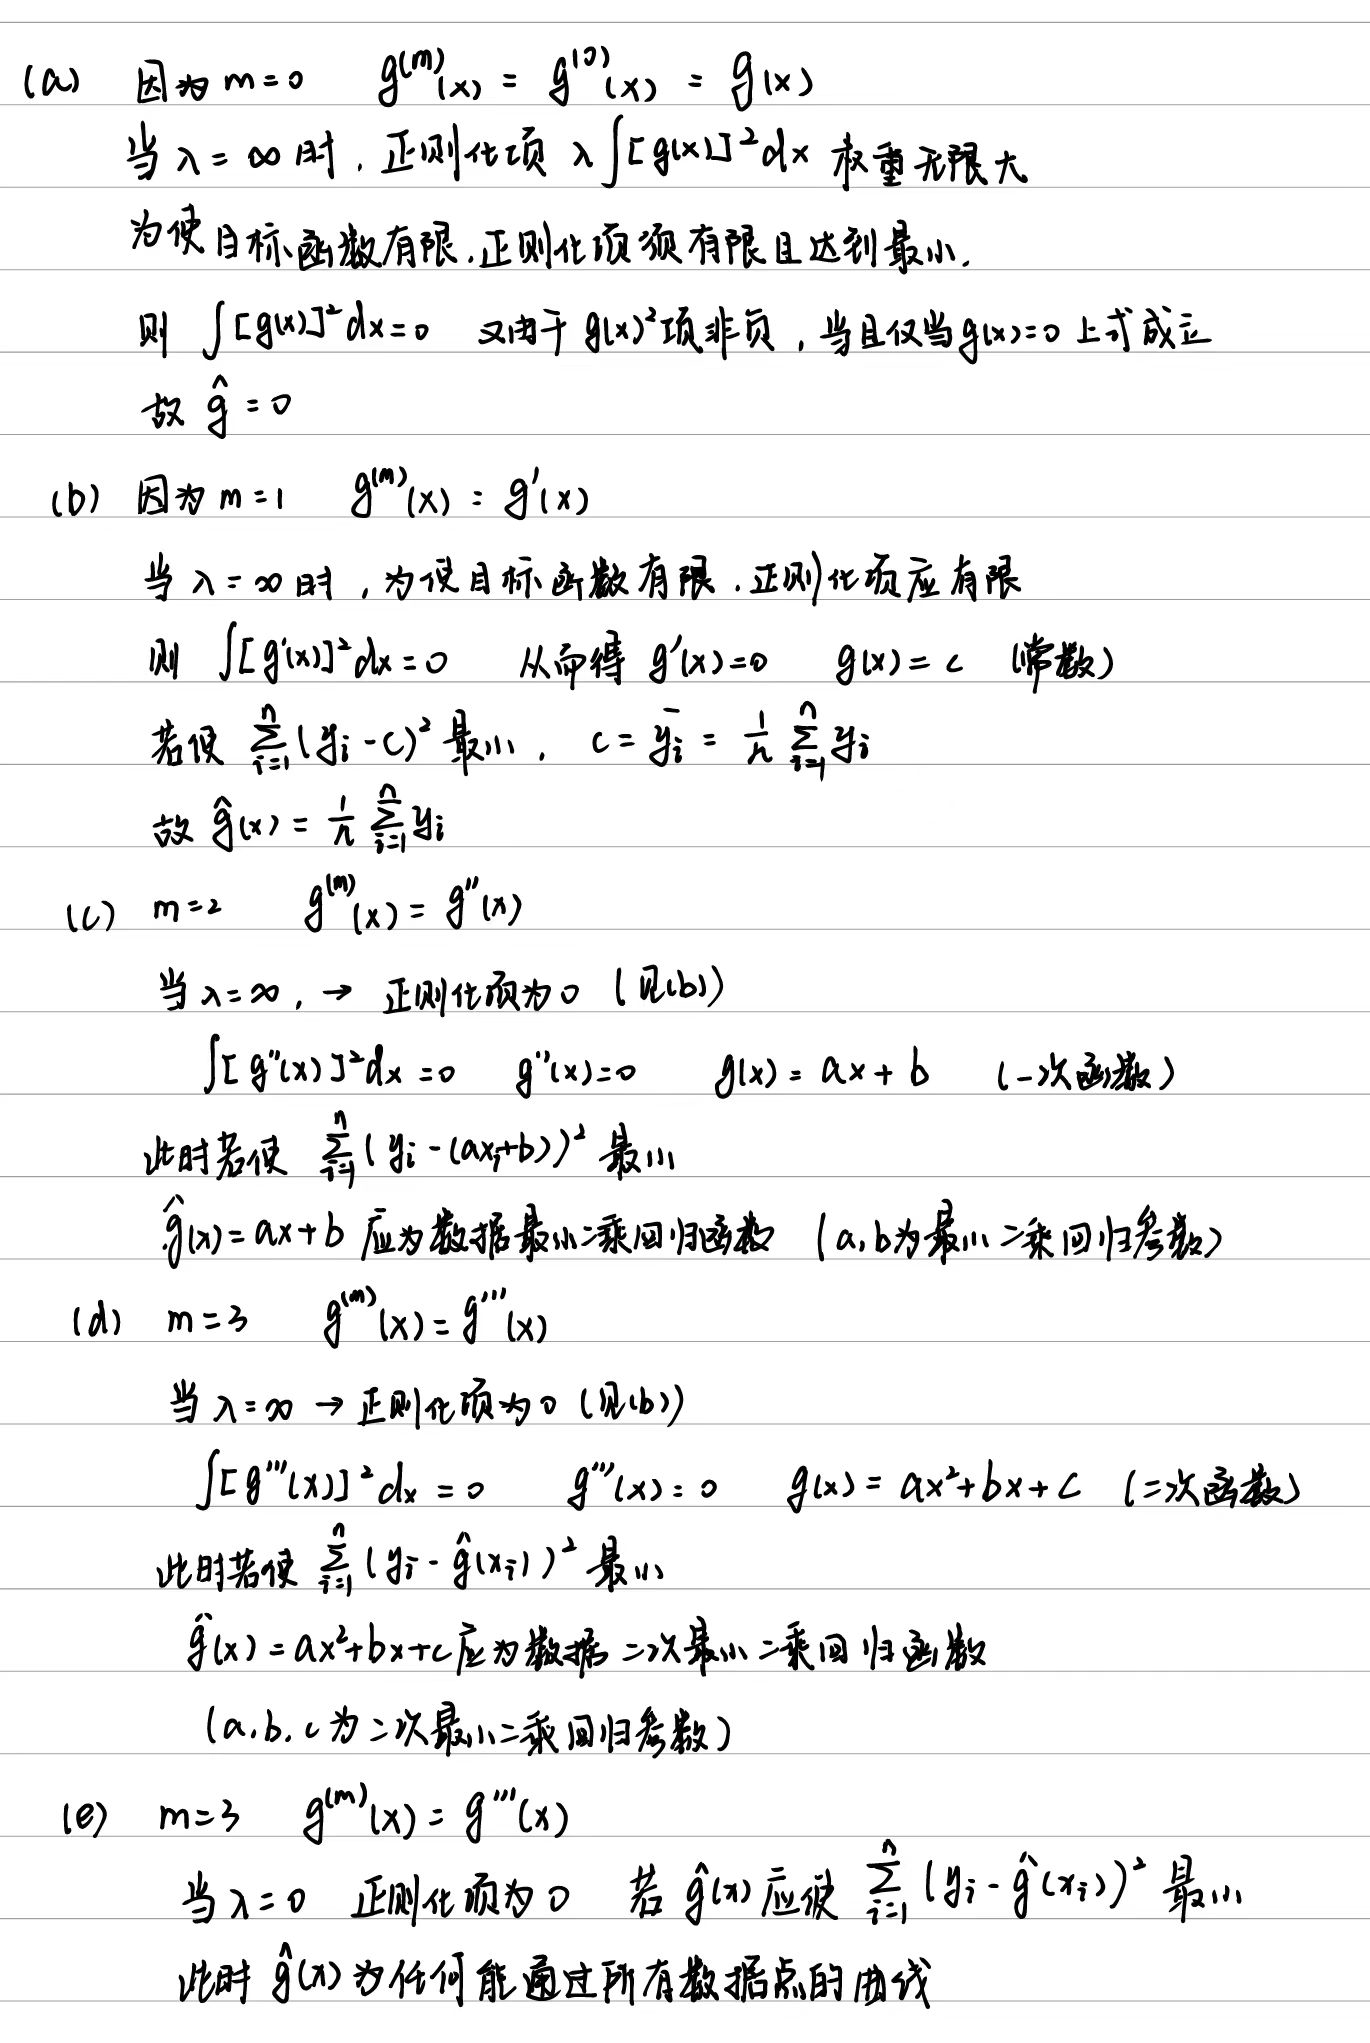 (a) 因为 m=0 g^(m)(x) = g^(0)(x) = g(x)
当 λ=∞ 时, 正则化项 λ∫[g(x)]²dx 权重无限大
为使目标函数有限,正则化项须有限且达到最小.
则 ∫[g(x)]²dx=0 又由于 g(x)²项非负, 当且仅当g(x)=0 上式成立
故 ĝ=0
(b) 因为 m=1 g^(m)(x) = g'(x)
当 λ=∞时, 为使目标函数有限.正则化项应有限
则 ∫[g'(x)]²dx=0 从而得 g'(x)=0 g(x)=c (常数)
若使 Σ_{i=1}^{n}(y_i-c)² 最小, c = ȳ_i = 1/n Σ_{i=1}^{n} y_i
故 ĝ(x) = 1/n Σ_{i=1}^{n} y_i
(c) m=2 g^(m)(x) = g''(x)
当 λ=∞, → 正则化项为0 (见(b))
∫[g''(x)]²dx=0 g''(x)=0 g(x)=ax+b (一次函数)
此时若使 Σ_{i=1}^{n}(y_i-(ax_i+b))² 最小
ĝ(x)=ax+b 应为数据最小二乘回归函数 (a,b为最小二乘回归参数)
(d) m=3 g^(m)(x)=g'''(x)
当 λ=∞ → 正则化项为0 (见(b))
∫[g'''(x)]²dx=0 g'''(x)=0 g(x)=ax²+bx+c (二次函数)
此时若使 Σ_{i=1}^{n}(y_i-ĝ(x_i))² 最小
ĝ(x)=ax²+bx+c应为数据二次最小二乘回归函数
(a.b.c为二次最小二乘回归参数)
(e) m=3 g^(m)(x)=g'''(x)
当 λ=0 正则化项为0 若 ĝ(x)应使 Σ_{i=1}^{n}(y_i-ĝ(x_i))² 最小
此时 ĝ(x)为任何能通过所有数据点的曲线